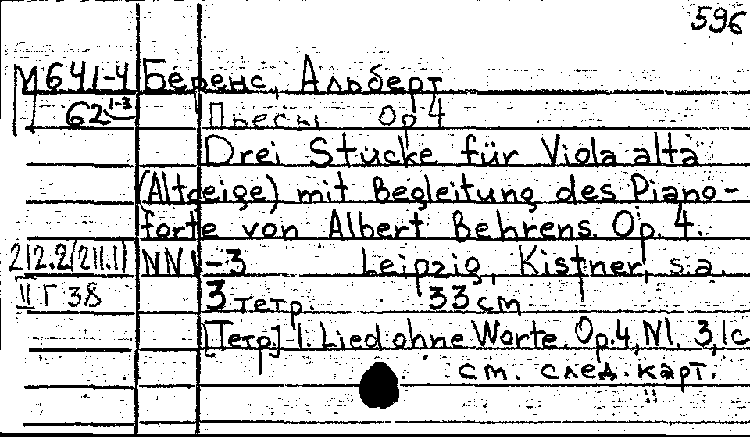 596
М641-4 Беренс, Альберт
62 1-3 Пьесы Op 4
Drei Stücke für Viola alta
(Altgeige) mit Begleitung des Piano-
forte von Albert Behrens. Op. 4.
212.2(211.1) NN1-3 Leipzig, Kistner, s.a.
II Г 38 3 тетр. 33 cm
[Тетр.] 1. Lied ohne Worte. Op. 4, N1. 3, 1c
см. след. карт.